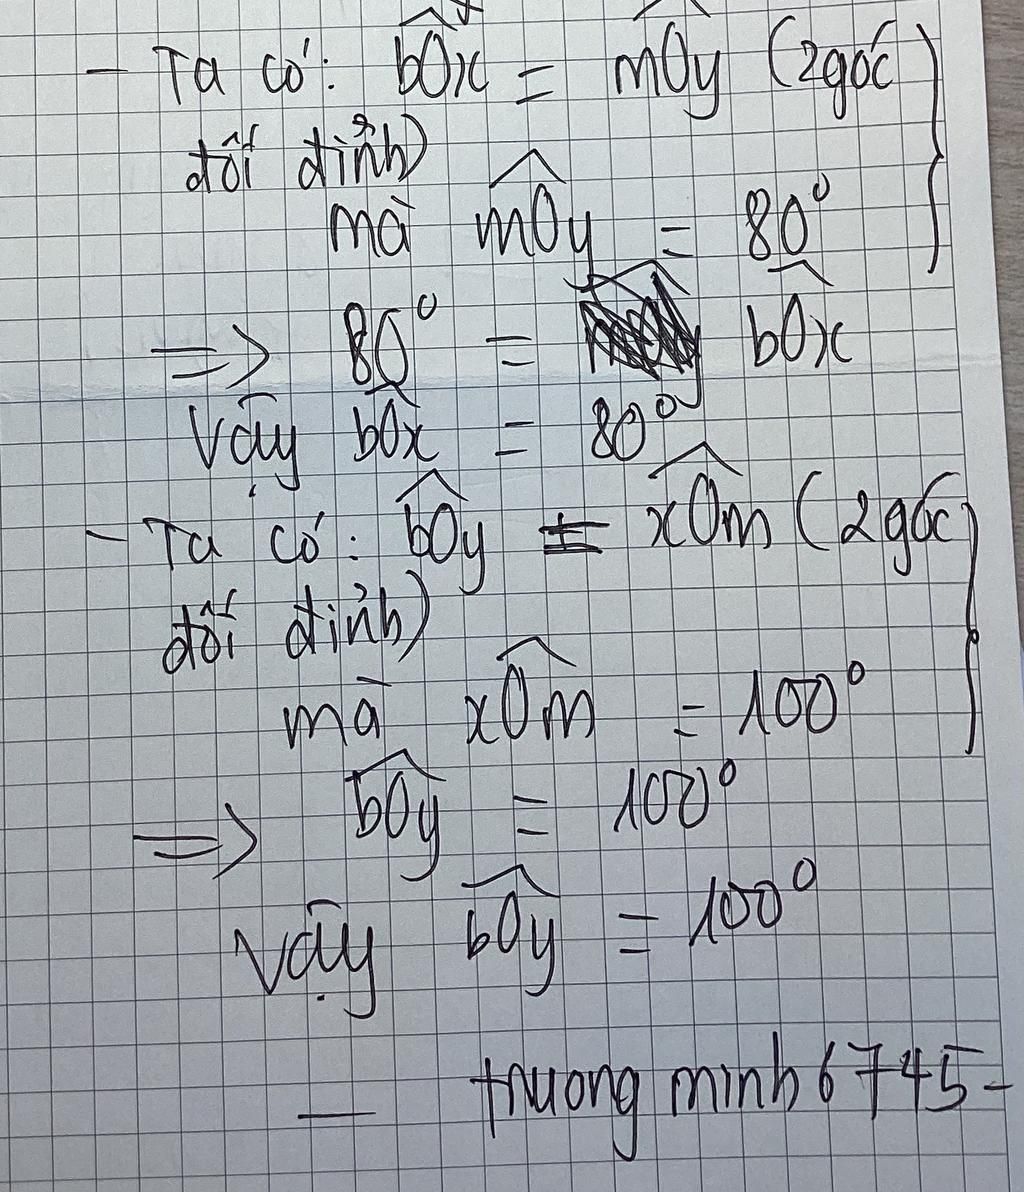 - Ta có: bOx = mOy (2góc
đối đỉnh)
mà mOy = 80°
=> 80° = bOx
Vậy bOx = 80°
- Ta có: bOy = xOm (2góc
đối đỉnh)
mà xOm = 100°
=> bOy = 100°
Vậy bOy = 100°
— truong minh 6745 -